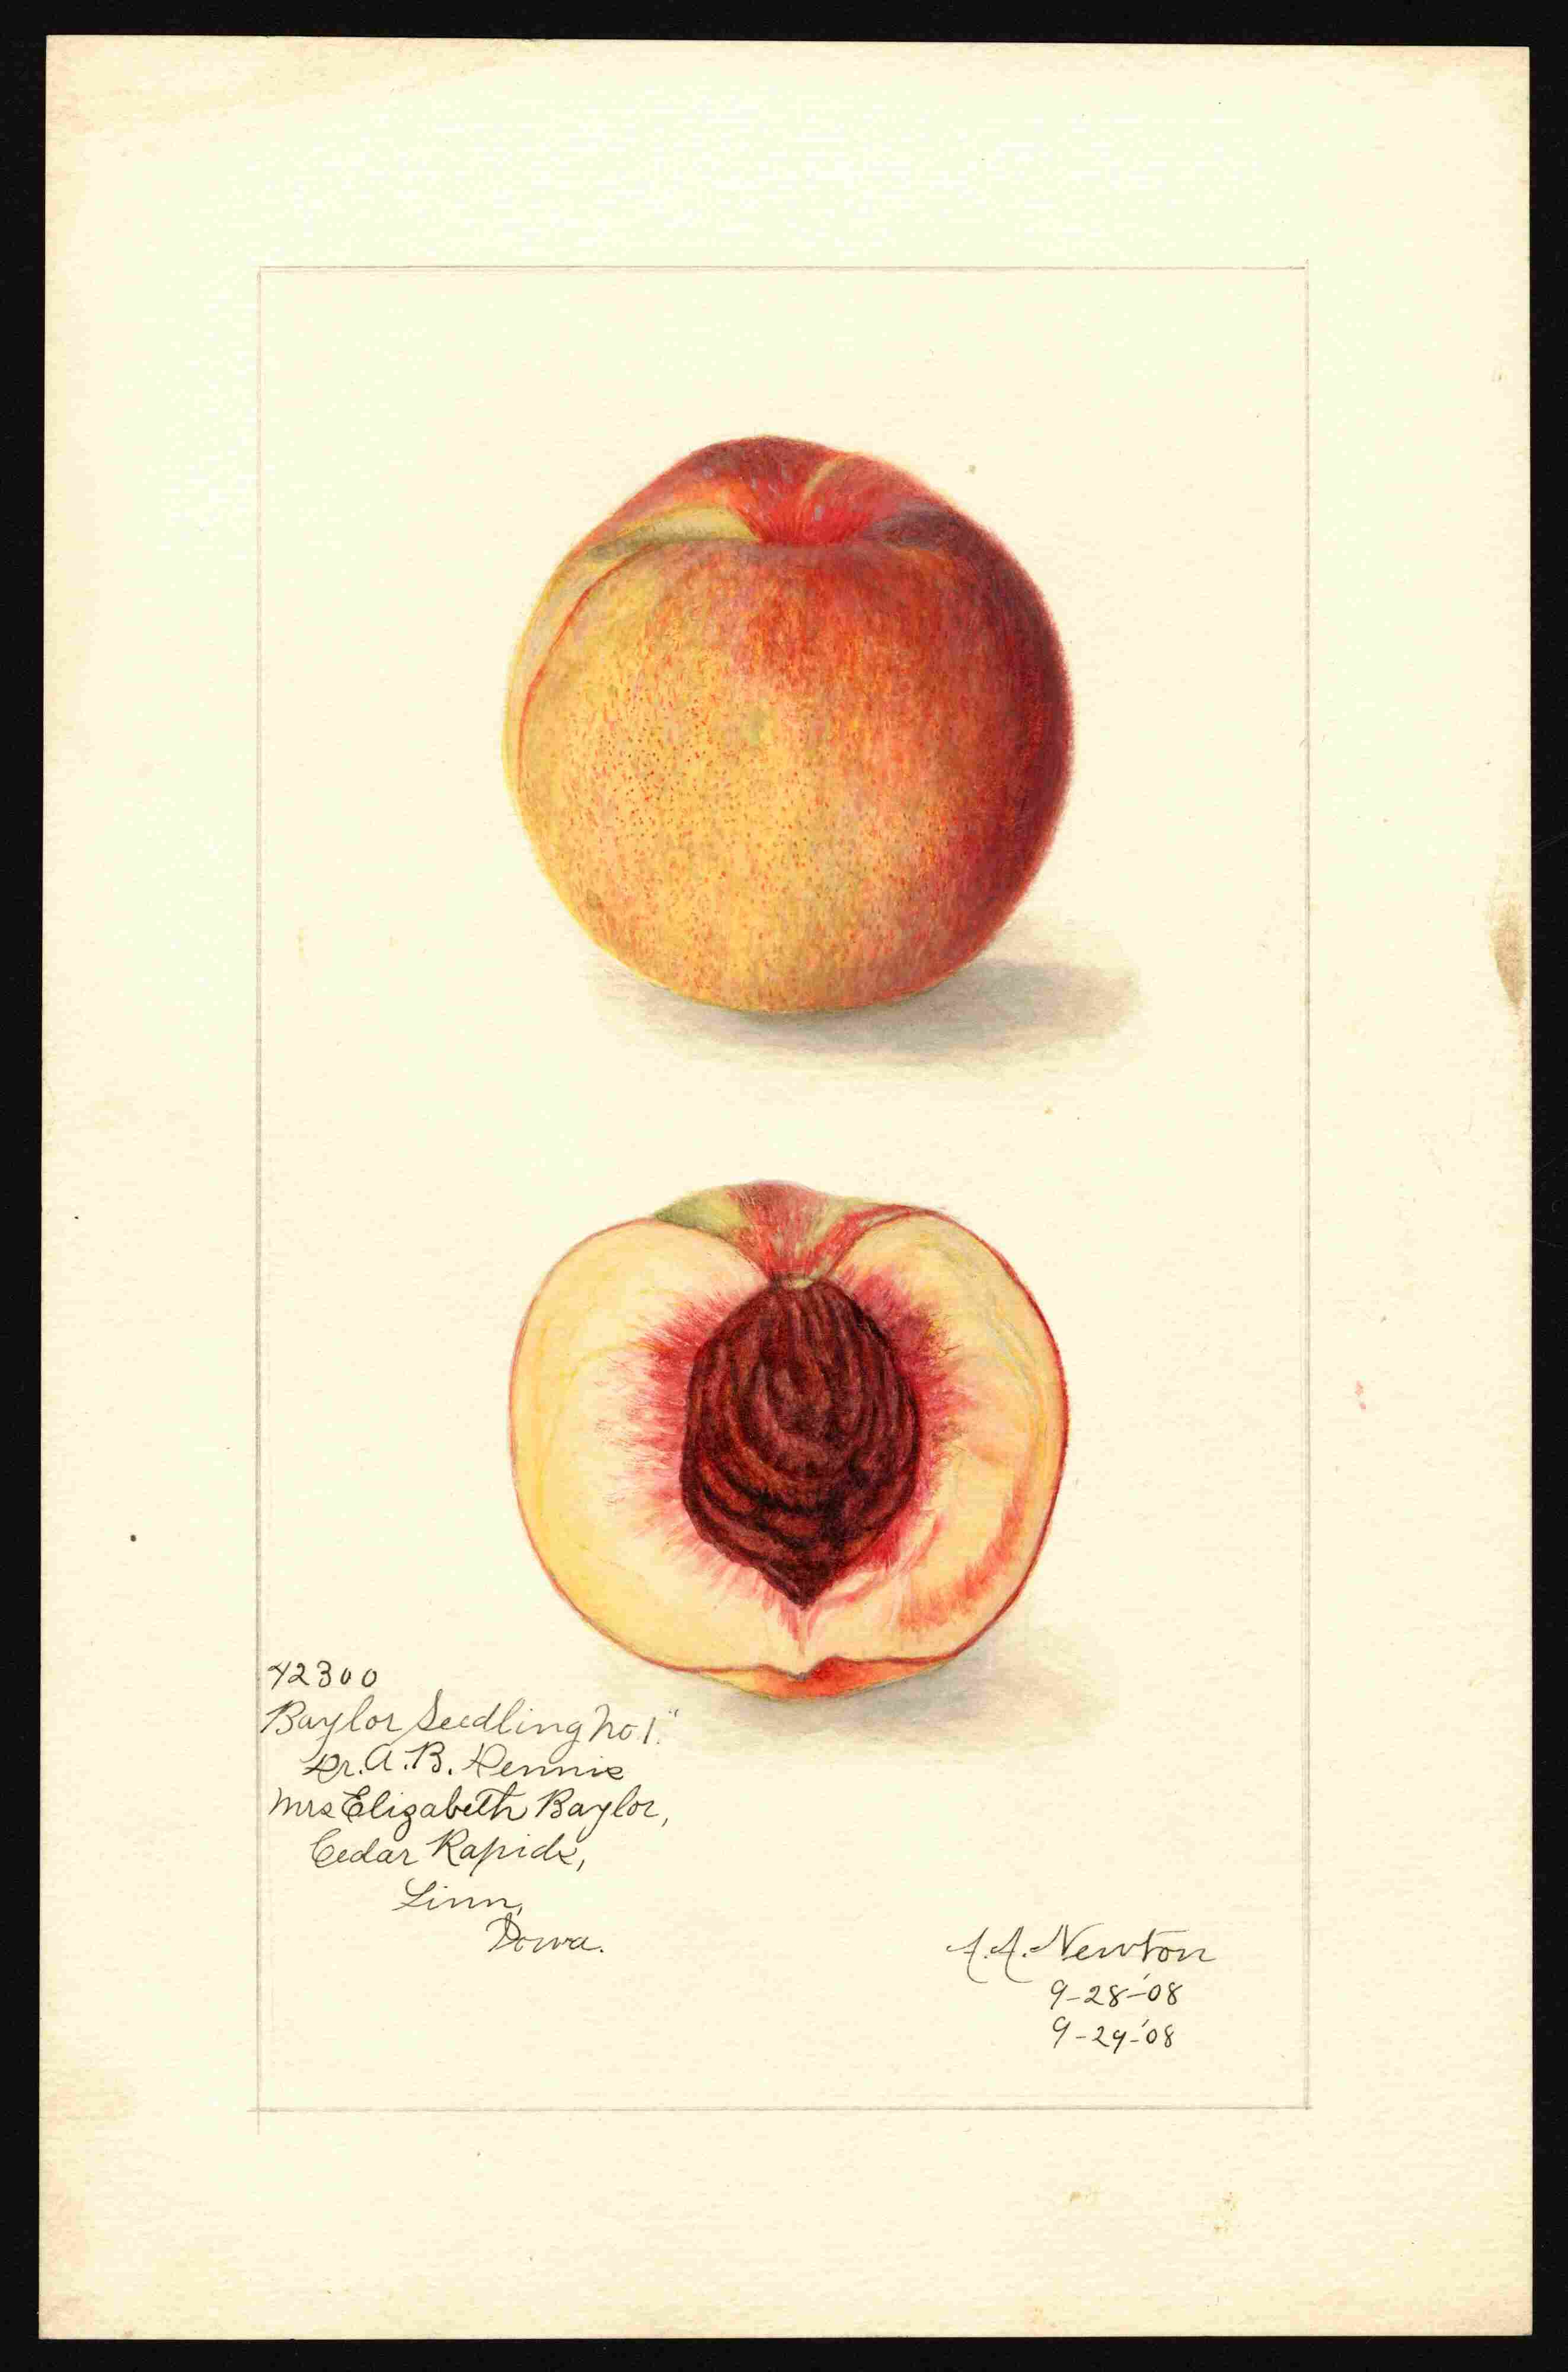 42300
Baylor Seedling No. 1."
Dr. A. B. Dennis
Mrs Elizabeth Baylor,
Cedar Rapids,
Linn,
Iowa.
A. A. Newton
9-28-'08
9-29-'08